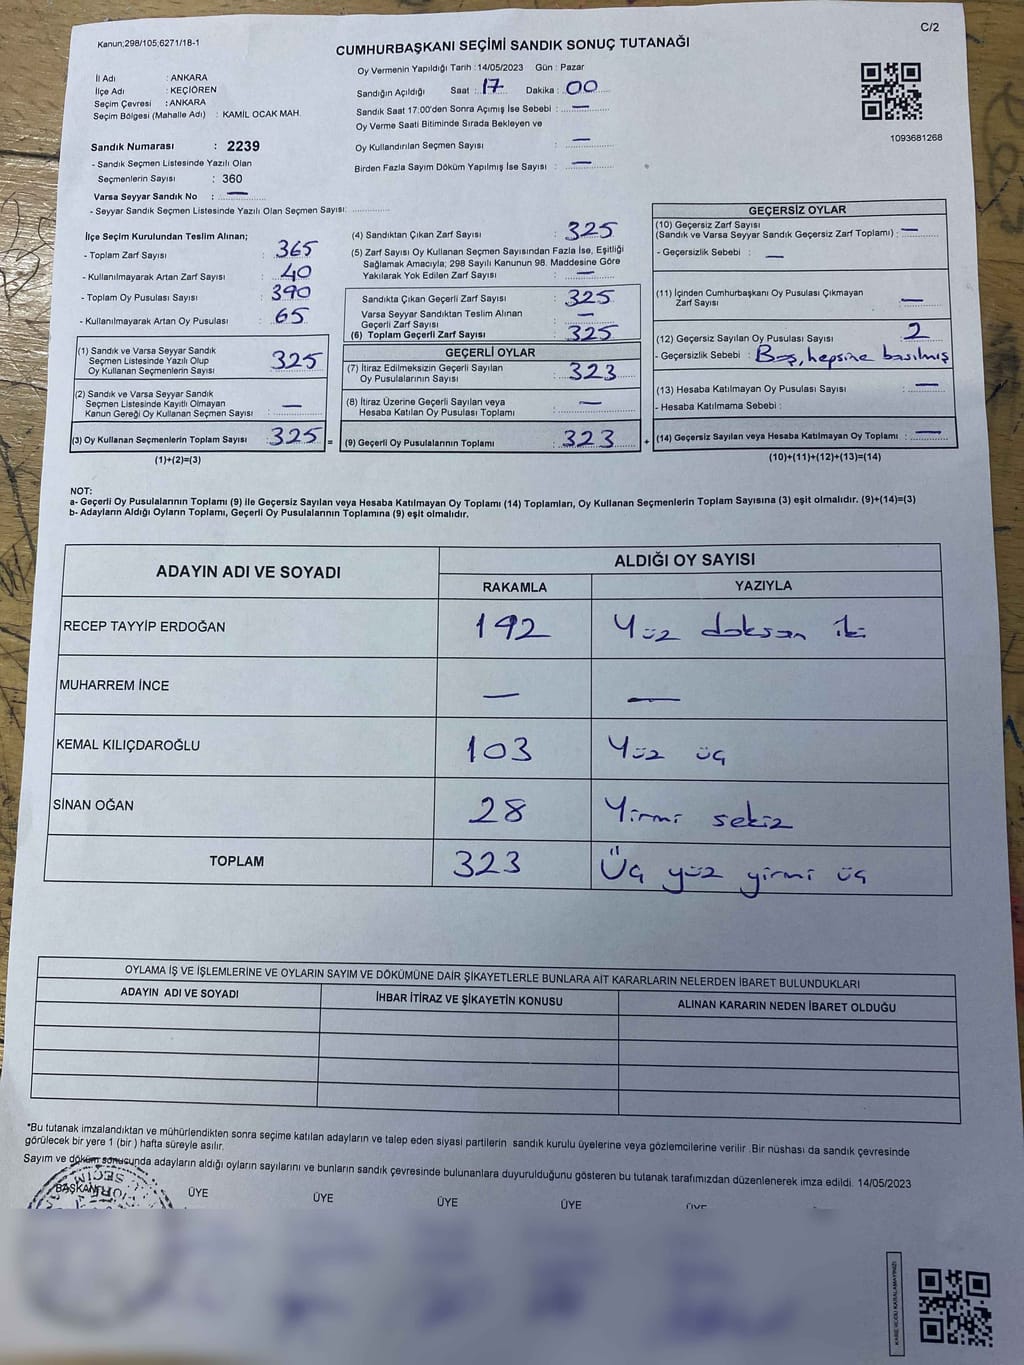 C/2
Kanun;298/105;6271/18-1
CUMHURBAŞKANI SEÇİMİ SANDIK SONUÇ TUTANAĞI
İl Adı : ANKARA
İlçe Adı : KEÇİÖREN
Seçim Çevresi : ANKARA
Seçim Bölgesi (Mahalle Adı) : KAMİL OCAK MAH.
Sandık Numarası : 2239
- Sandık Seçmen Listesinde Yazılı Olan
Seçmenlerin Sayısı : 360
Varsa Seyyar Sandık No : —
- Seyyar Sandık Seçmen Listesinde Yazılı Olan Seçmen Sayısı:
Oy Vermenin Yapıldığı Tarih :14/05/2023 Gün : Pazar
Sandığın Açıldığı Saat : 17 Dakika : 00
Sandık Saat 17:00'den Sonra Açımış İse Sebebi : —
Oy Verme Saati Bitiminde Sırada Bekleyen ve
Oy Kullandırılan Seçmen Sayısı : —
Birden Fazla Sayım Döküm Yapılmış İse Sayısı : —
1093681268
İlçe Seçim Kurulundan Teslim Alınan;
- Toplam Zarf Sayısı : 365
- Kullanılmayarak Artan Zarf Sayısı : 40
- Toplam Oy Pusulası Sayısı : 390
- Kullanılmayarak Artan Oy Pusulası : 65
(1) Sandık ve Varsa Seyyar Sandık
Seçmen Listesinde Yazılı Olup
Oy Kullanan Seçmenlerin Sayısı : 325
(2) Sandık ve Varsa Seyyar Sandık
Seçmen Listesinde Kayıtlı Olmayan
Kanun Gereği Oy Kullanan Seçmen Sayısı : —
(3) Oy Kullanan Seçmenlerin Toplam Sayısı : 325 =
(1)+(2)=(3)
(4) Sandıktan Çıkan Zarf Sayısı : 325
(5) Zarf Sayısı Oy Kullanan Seçmen Sayısından Fazla İse, Eşitliği
Sağlamak Amacıyla; 298 Sayılı Kanunun 98. Maddesine Göre
Yakılarak Yok Edilen Zarf Sayısı : —
Sandıkta Çıkan Geçerli Zarf Sayısı : 325
Varsa Seyyar Sandıktan Teslim Alınan
Geçerli Zarf Sayısı : —
(6) Toplam Geçerli Zarf Sayısı : 325
GEÇERLİ OYLAR
(7) İtiraz Edilmeksizin Geçerli Sayılan
Oy Pusulalarının Sayısı : 323
(8) İtiraz Üzerine Geçerli Sayılan veya
Hesaba Katılan Oy Pusulası Toplamı : —
(9) Geçerli Oy Pusulalarının Toplamı : 323 +
GEÇERSİZ OYLAR
(10) Geçersiz Zarf Sayısı
(Sandık ve Varsa Seyyar Sandık Geçersiz Zarf Toplamı) : —
- Geçersizlik Sebebi : —
(11) İçinden Cumhurbaşkanı Oy Pusulası Çıkmayan
Zarf Sayısı : —
(12) Geçersiz Sayılan Oy Pusulası Sayısı : 2
- Geçersizlik Sebebi : Boş, hepsine basılmış
(13) Hesaba Katılmayan Oy Pusulası Sayısı : —
- Hesaba Katılmama Sebebi :
(14) Geçersiz Sayılan veya Hesaba Katılmayan Oy Toplamı : —
(10)+(11)+(12)+(13)=(14)
NOT:
a- Geçerli Oy Pusulalarının Toplamı (9) ile Geçersiz Sayılan veya Hesaba Katılmayan Oy Toplamı (14) Toplamları, Oy Kullanan Seçmenlerin Toplam Sayısına (3) eşit olmalıdır. (9)+(14)=(3)
b- Adayların Aldığı Oyların Toplamı, Geçerli Oy Pusulalarının Toplamına (9) eşit olmalıdır.
ADAYIN ADI VE SOYADI ALDIĞI OY SAYISI
RAKAMLA YAZIYLA
RECEP TAYYİP ERDOĞAN 192 Yüz doksan iki
MUHARREM İNCE — —
KEMAL KILIÇDAROĞLU 103 Yüz üç
SİNAN OĞAN 28 Yirmi sekiz
TOPLAM 323 Üç yüz yirmi üç
OYLAMA İŞ VE İŞLEMLERİNE VE OYLARIN SAYIM VE DÖKÜMÜNE DAİR ŞİKAYETLERLE BUNLARA AİT KARARLARIN NELERDEN İBARET BULUNDUKLARI
ADAYIN ADI VE SOYADI İHBAR İTİRAZ VE ŞİKAYETİN KONUSU ALINAN KARARIN NEDEN İBARET OLDUĞU
*Bu tutanak imzalandıktan ve mühürlendikten sonra seçime katılan adayların ve talep eden siyasi partilerin sandık kurulu üyelerine veya gözlemcilerine verilir .Bir nüshası da sandık çevresinde
görülecek bir yere 1 (bir ) hafta süreyle asılır.
Sayım ve döküm sonucunda adayların aldığı oyların sayılarını ve bunların sandık çevresinde bulunanlara duyurulduğunu gösteren bu tutanak tarafımızdan düzenlenerek imza edildi. 14/05/2023
BAŞKAN ÜYE ÜYE ÜYE ÜYE ÜYE